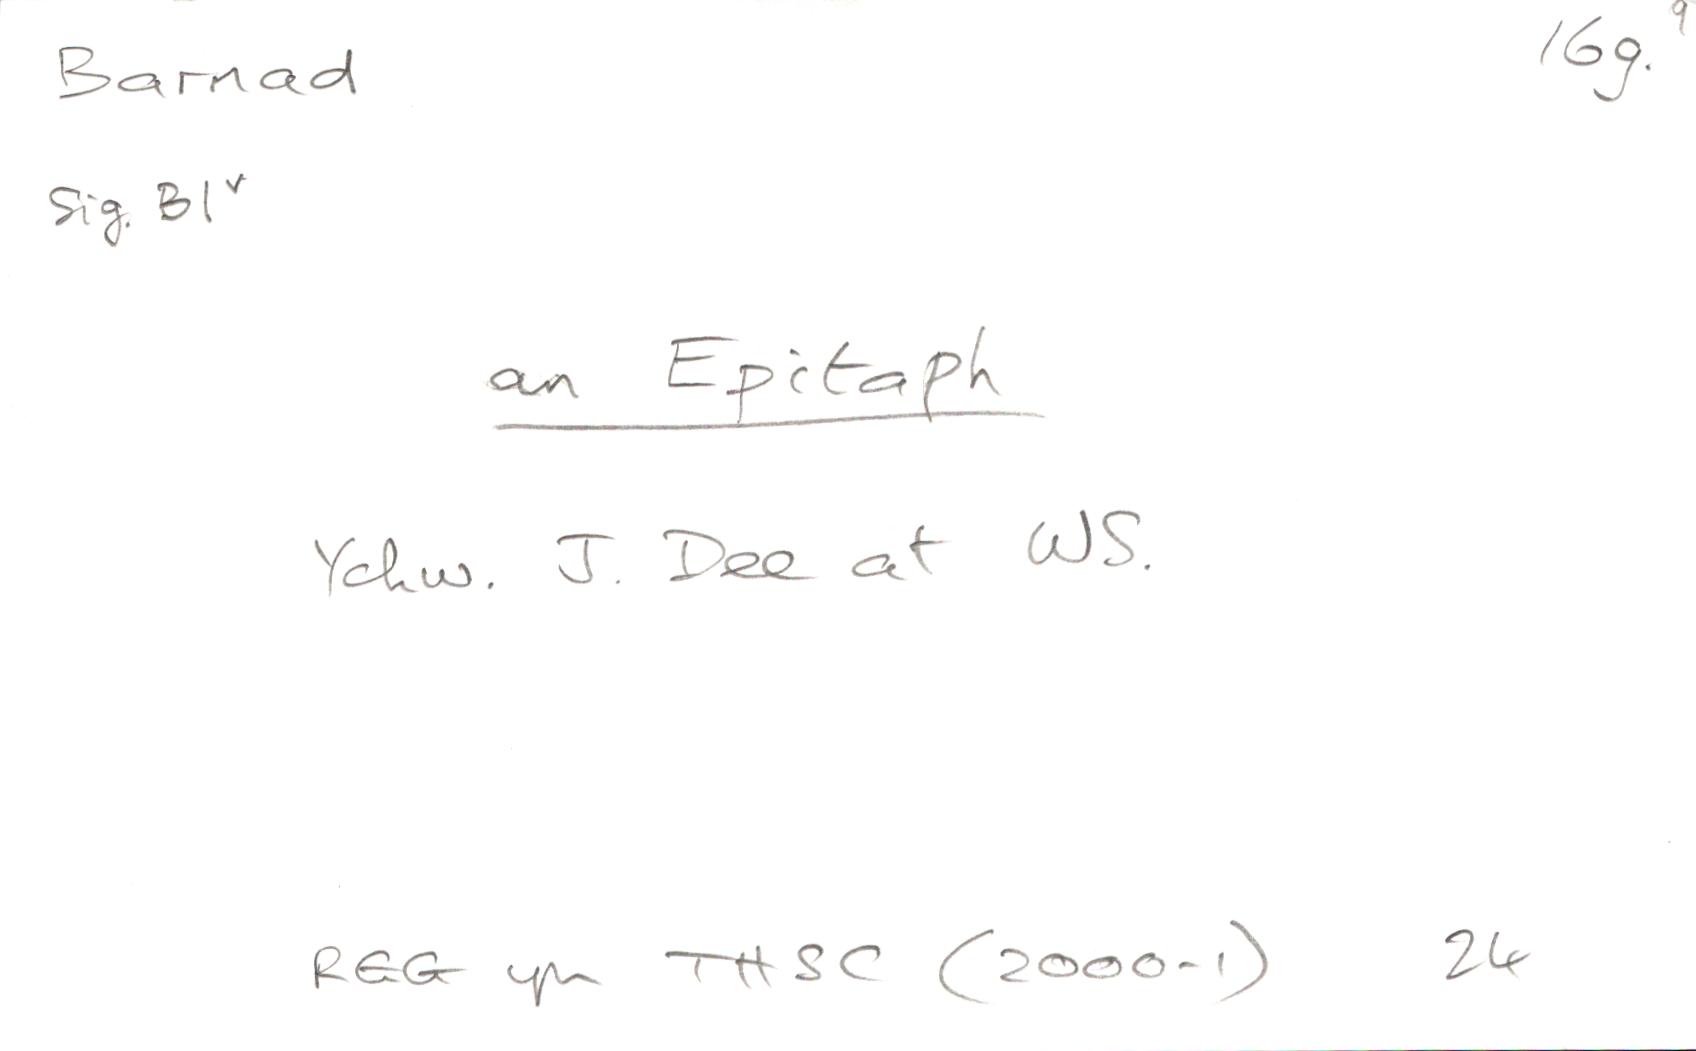 Barnad 16g.
Sig. B1ᵛ
an Epitaph
Ychw. J. Dee at WS.
REG yn THSC (2000-1) 24